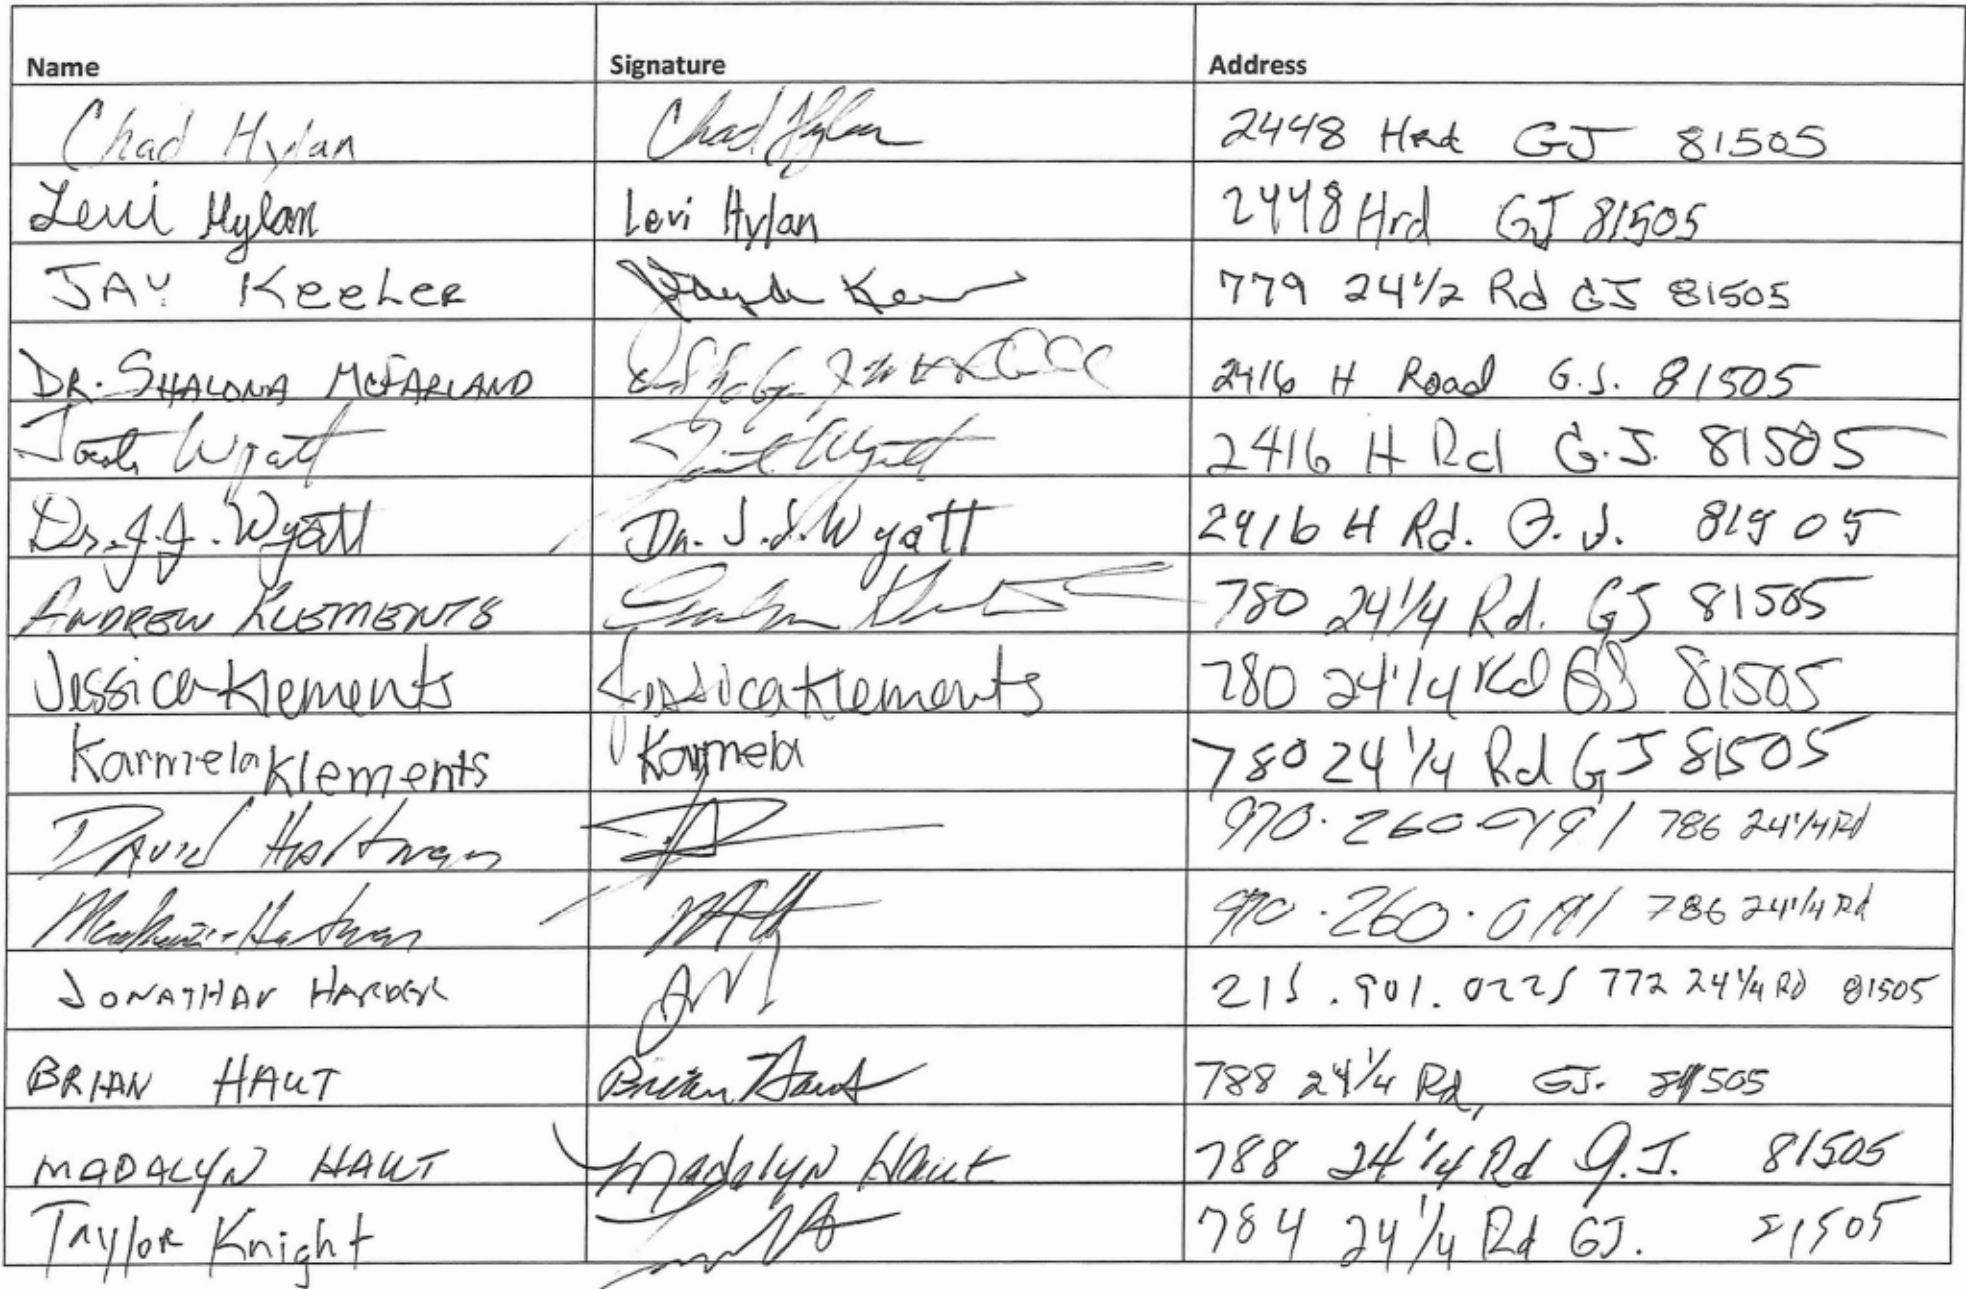 Name Signature Address
Chad Hylan Chad Hylan 2448 Hrd GJ 81505
Levi Hylan Levi Hylan 2448 Hrd GJ 81505
JAY KeeLer 779 24 1/2 Rd GJ 81505
DR. SHALONA MCFARLAND 2416 H Road G.J. 81505
Wyatt Wyatt 2416 H Rd G.J. 81505
Dr. J.J. Wyatt Dr. J.J. Wyatt 2416 H Rd. G.J. 81505
ANDREW KLEMENTS 780 24 1/4 Rd. GJ 81505
Jessica Klements Jessica Klements 780 24 1/4 Rd GJ 81505
Karmela Klements Karmela 780 24 1/4 Rd GJ 81505
DAVID Hartman 970.260.0191 786 24 1/4 Rd
Hartman 970.260.0191 786 24 1/4 Rd
JONATHAN HARDER 215.901.0225 772 24 1/4 RD 81505
BRIAN HAUT Brian Haut 788 24 1/4 Rd, GJ. 81505
MADALYN HAUT Madalyn Haut 788 24 1/4 Rd G.J. 81505
Taylor Knight 784 24 1/4 Rd GJ. 81505